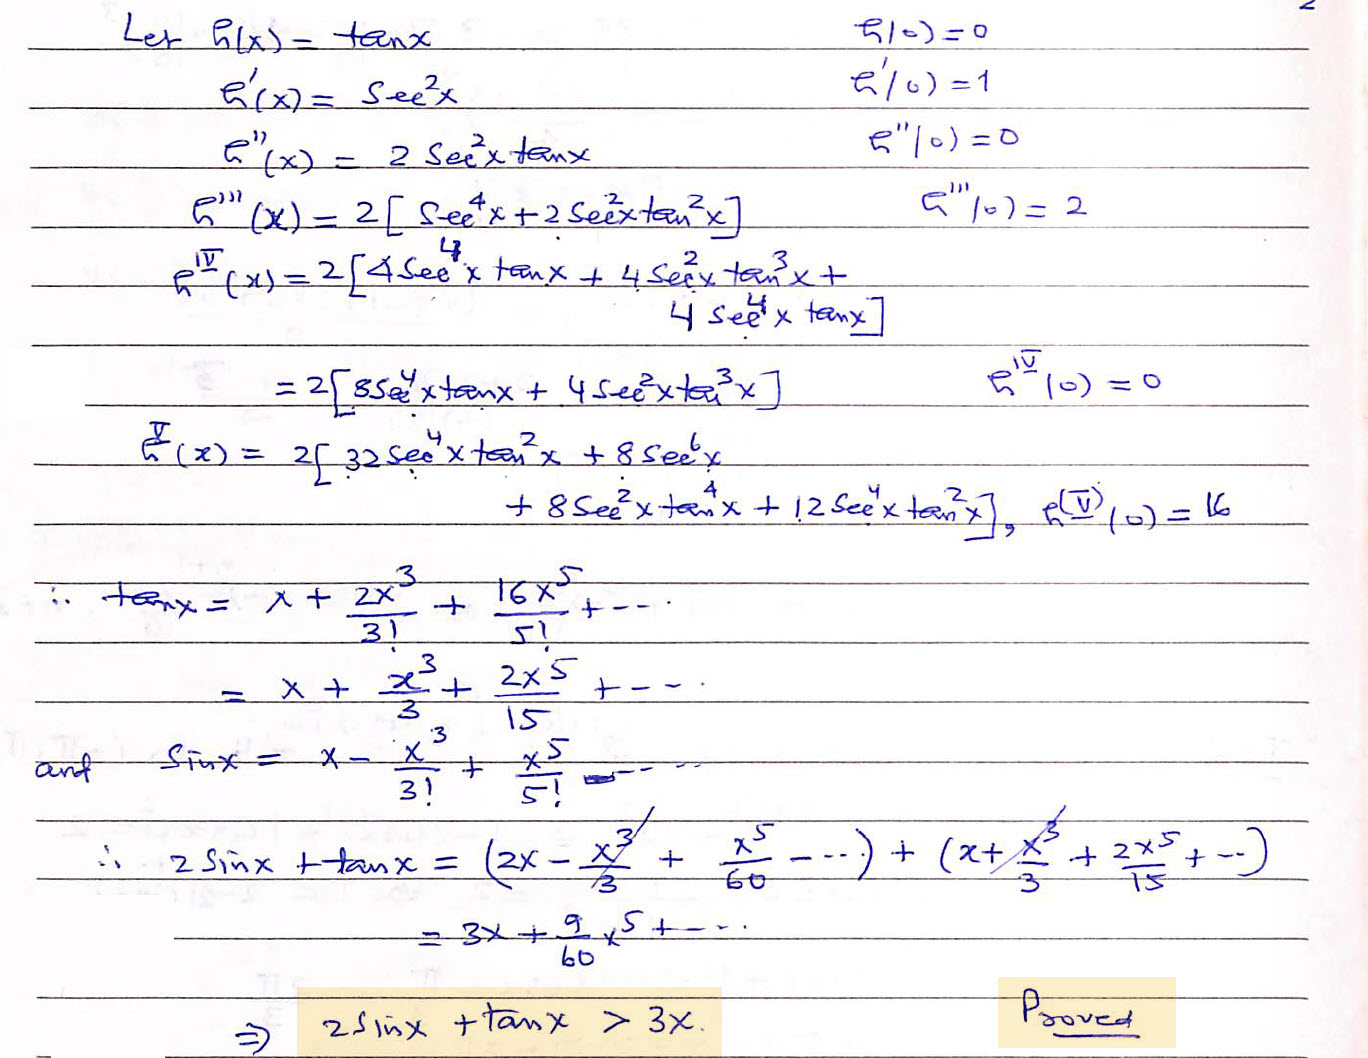 Let h(x) = tanx h(0) = 0
h'(x) = Sec²x h'(0) = 1
h''(x) = 2 Sec²x tanx h''(0) = 0
h'''(x) = 2[Sec⁴x + 2Sec²x tan²x] h'''(0) = 2
h^IV(x) = 2[4Sec⁴x tanx + 4Sec²x tan³x +
4 Sec⁴x tanx]
= 2[8Sec⁴x tanx + 4Sec²x tan³x] h^IV(0) = 0
h^V(x) = 2[32Sec⁴x tan²x + 8Sec⁶x
+ 8Sec²x tan⁴x + 12Sec⁴x tan²x], h^(V)(0) = 16
∴ tanx = x + 2x³/3! + 16x⁵/5! + ---.
= x + x³/3 + 2x⁵/15 + ---.
and Sinx = x - x³/3! + x⁵/5! - ----
∴ 2Sinx + tanx = (2x - x³/3 + x⁵/60 - ...) + (x + x³/3 + 2x⁵/15 + --)
= 3x + 9/60 x⁵ + ---.
⇒ 2Sinx + tanx > 3x. Proved